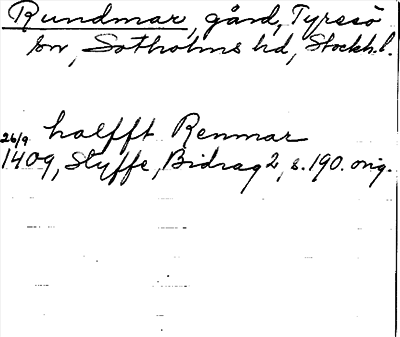 Rundmar, gård, Tyresö
sn, Sotholms hd, Stockh.l.
halfft Renmar
26/9
1409, Styffe, Bidrag 2, s. 190. orig.